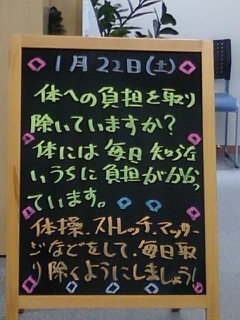 1月22日(土)
体への負担を取り
除いていますか?
体には毎日知らな
いうちに負担がかかっ
ています。
体操、ストレッチ、マッサー
ジなどをして、毎日取
り除くようにしましょう!